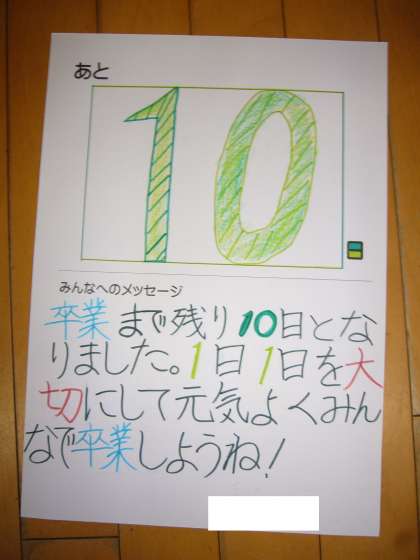 あと
10日
みんなへのメッセージ
卒業まで残り10日とな
りました。1日1日を大
切にして元気よくみん
なで卒業しようね!